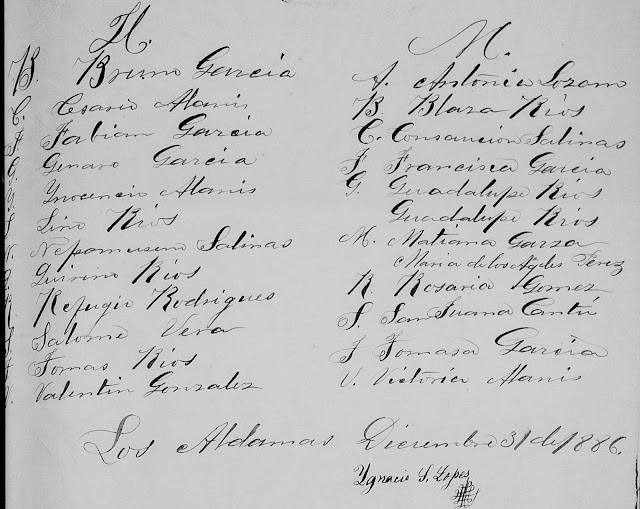 H.
B. Bruno Garcia
C. Cesario Alanis
F. Fabian Garcia
G. Genaro Garcia
Ynocencio Alanis
Lino Rios
N. Nepomuseno Salinas
Quirino Rios
Refugio Rodrigues
Salomé Vera
Tomas Rios
V. Valentin Gonzalez
M.
A. Antonia Lozano
B. Blaza Rios
C. Consaucion Salinas
F. Francisca Garcia
G. Guadalupe Rios
Guadalupe Rios
M. Matiana Garza
Maria de los Angeles Perez
R. Rosaria Gomez
S. San Juana Cantú
T Tomasa Garcia
V. Victoria Alanis
Los Aldamas Diciembre 31 de 1886.
Ygnacio S. Lopes